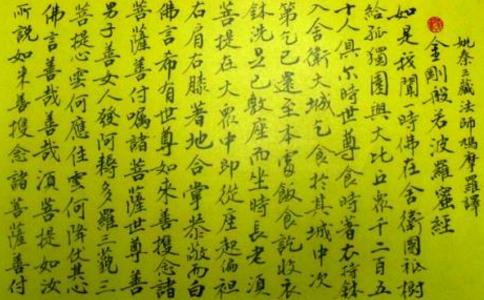 姚秦三藏法師鳩摩羅譯
金剛般若波羅蜜經
如是我聞一時佛在舍衛國祇樹
給孤獨園與大比丘眾千二百五
十人俱尒時世尊食時著衣持鉢
入舍衛大城乞食於其城中次
第乞已還至本處飯食訖收衣
鉢洗足已敷座而坐時長老須
菩提在大眾中即從座起偏袒
右肩右膝著地合掌恭敬而白
佛言希有世尊如來善護念諸
菩薩善付囑諸菩薩世尊善
男子善女人發阿耨多羅三藐三
菩提心雲何應住雲何降伏其心
佛言善哉善哉須菩提如汝
所說如來善護念諸菩薩善付